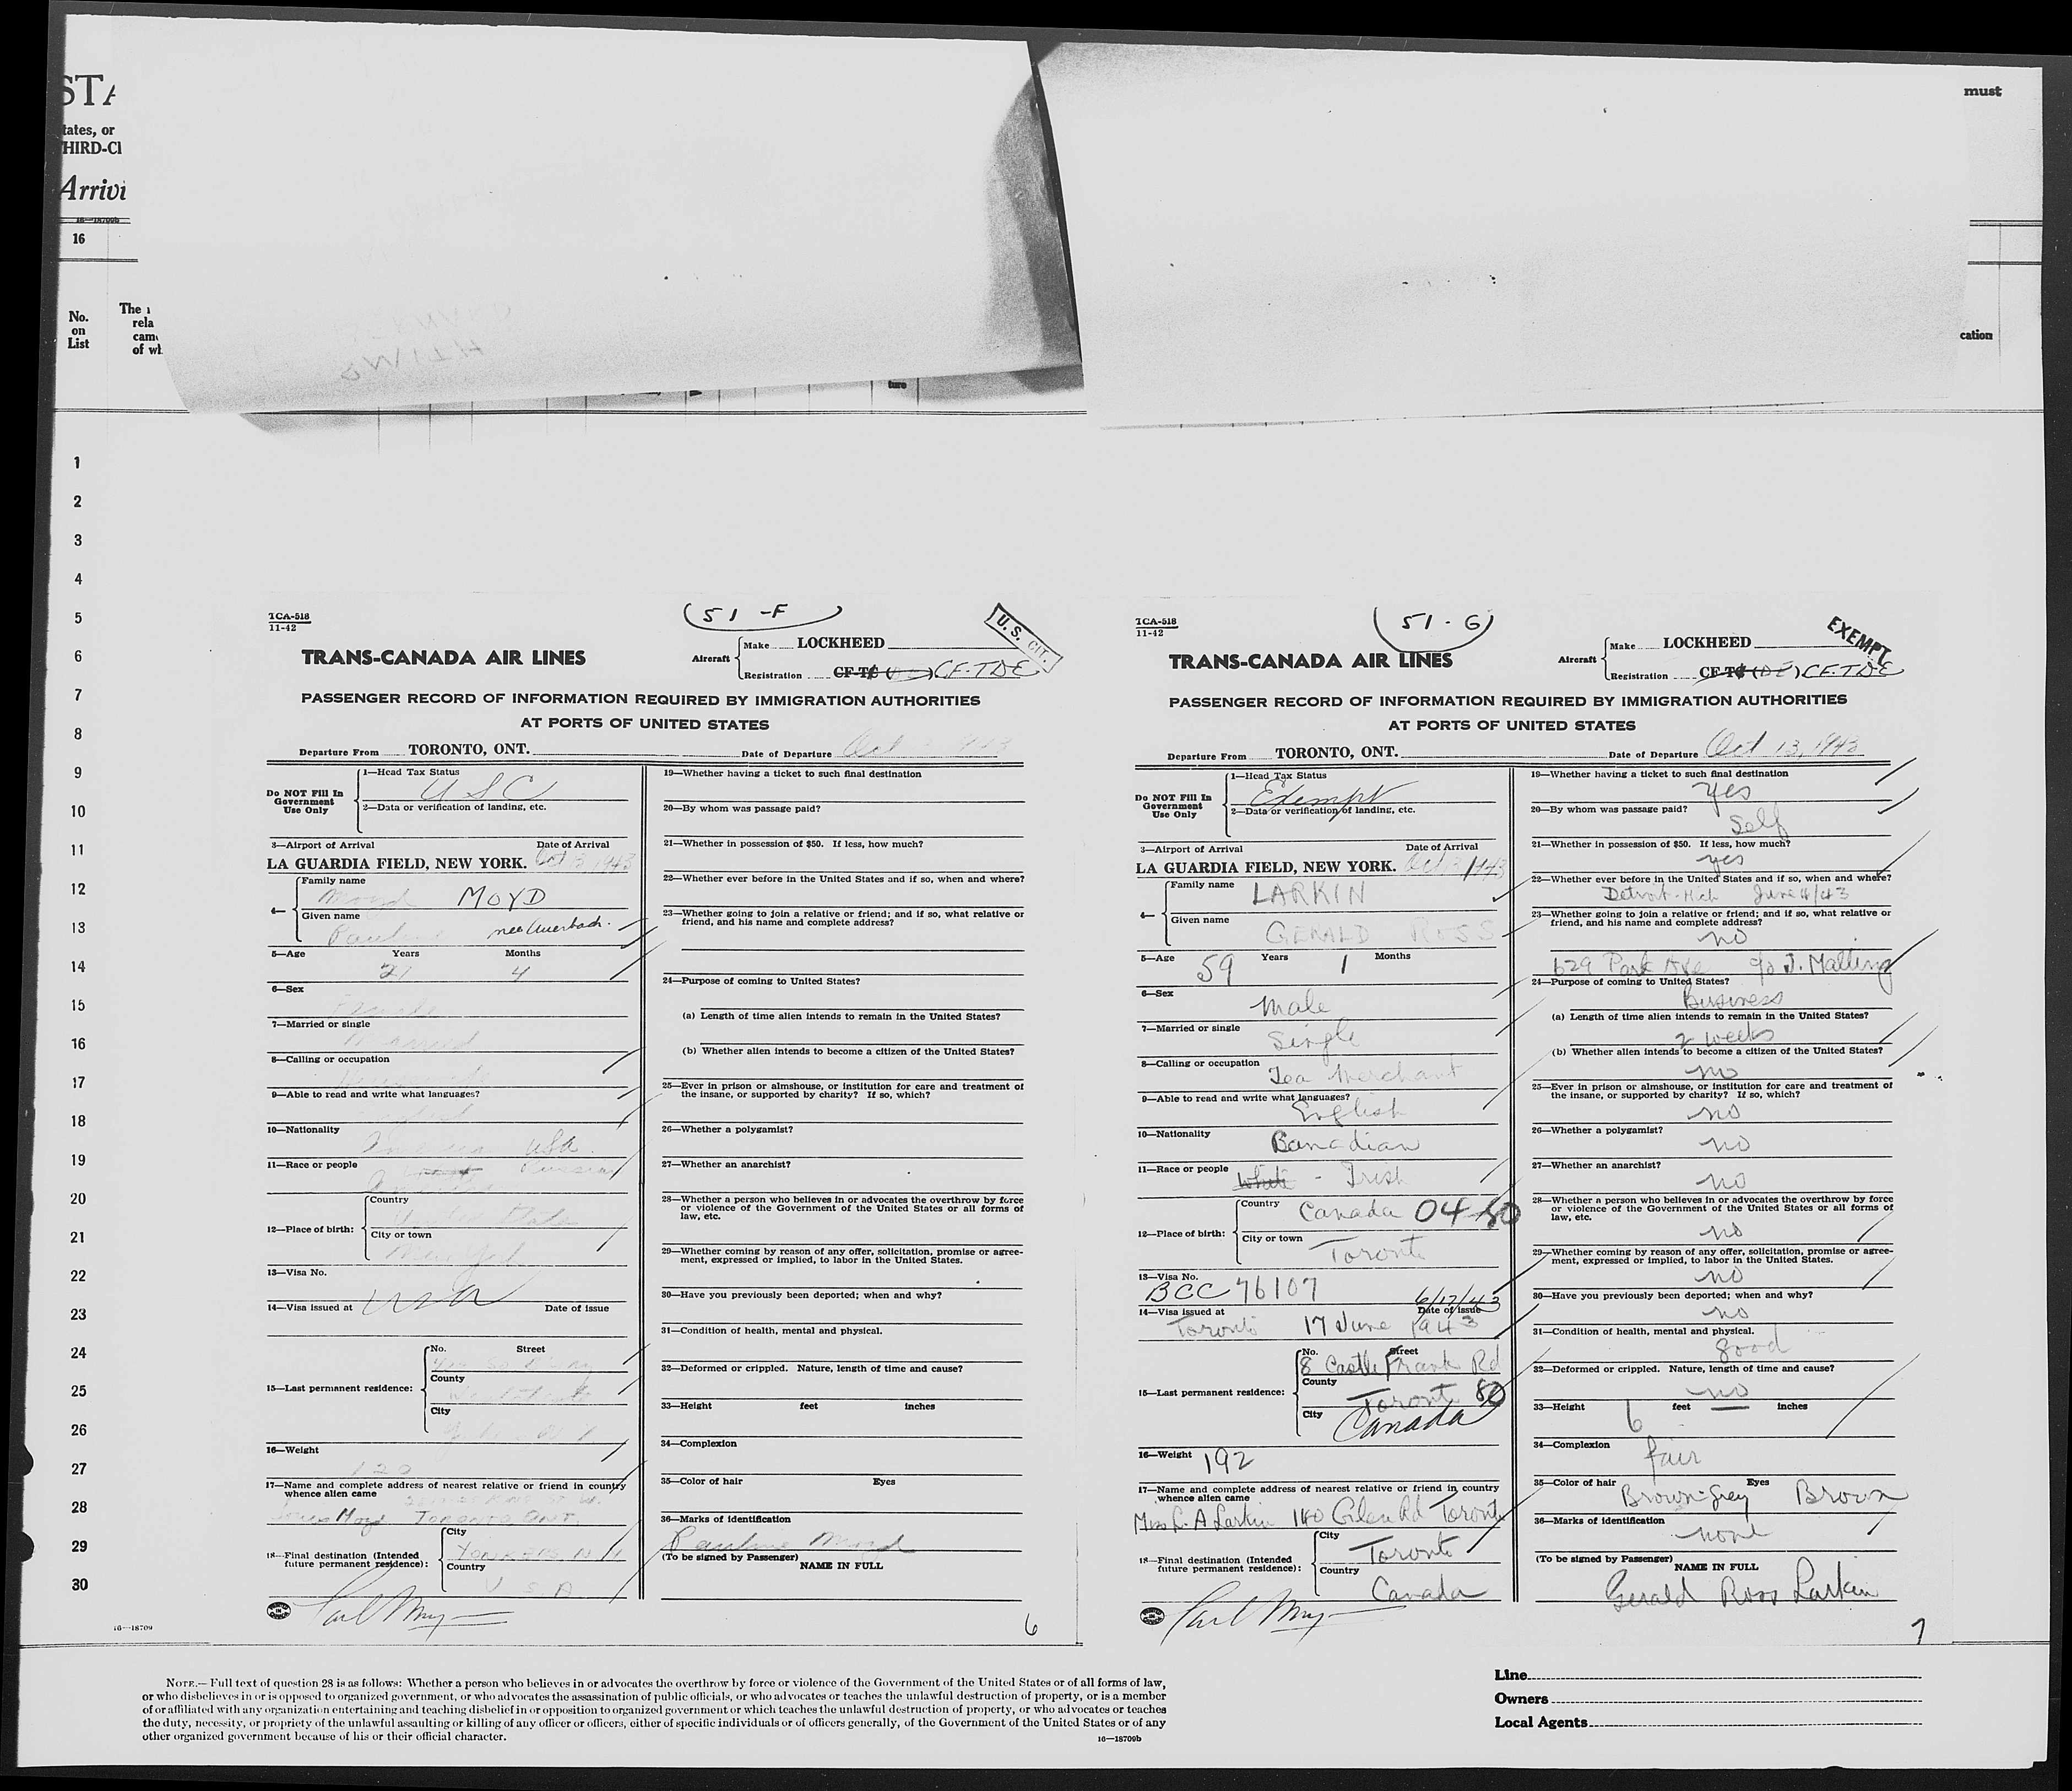 STA
tates, or
HIRD-Cl
Arrivi
16—18709b
16
No.
on
List
The
rela
came
of wh
ture
must
cation
1
2
3
4
5
6
7
8
9
10
11
12
13
14
15
16
17
18
19
20
21
22
23
24
25
26
27
28
29
30
16—18709
TCA-518
11-42
(51 -F)
U. S. CIT.
TRANS-CANADA AIR LINES
Aircraft
Make LOCKHEED
Registration CF-T CF-TDE
PASSENGER RECORD OF INFORMATION REQUIRED BY IMMIGRATION AUTHORITIES
AT PORTS OF UNITED STATES
Departure From TORONTO, ONT. Date of Departure Oct 1943
Do NOT Fill In
Government
Use Only
1—Head Tax Status
USC
2—Data or verification of landing, etc.
3—Airport of Arrival Date of Arrival
LA GUARDIA FIELD, NEW YORK. Oct 13 1943
4—
Family name
MOYD
Given name
Pauline nee Auerbach.
5—Age Years Months
21 4
6—Sex
Female
7—Married or single
Married
8—Calling or occupation
9—Able to read and write what languages?
10—Nationality
USA
11—Race or people
Russian
12—Place of birth:
Country
United States
City or town
New York
13—Visa No.
USA
14—Visa issued at Date of issue
15—Last permanent residence:
No. Street
County
City
16—Weight
120
17—Name and complete address of nearest relative or friend in country
whence alien came
Moyd TORONTO ONT.
18—Final destination (Intended
future permanent residence):
City
YONKERS N Y
Country
U S A
19—Whether having a ticket to such final destination
20—By whom was passage paid?
21—Whether in possession of $50. If less, how much?
22—Whether ever before in the United States and if so, when and where?
23—Whether going to join a relative or friend; and if so, what relative or
friend, and his name and complete address?
24—Purpose of coming to United States?
(a) Length of time alien intends to remain in the United States?
(b) Whether alien intends to become a citizen of the United States?
25—Ever in prison or almshouse, or institution for care and treatment of
the insane, or supported by charity? If so, which?
26—Whether a polygamist?
27—Whether an anarchist?
28—Whether a person who believes in or advocates the overthrow by force
or violence of the Government of the United States or all forms of
law, etc.
29—Whether coming by reason of any offer, solicitation, promise or agree-
ment, expressed or implied, to labor in the United States.
30—Have you previously been deported; when and why?
31—Condition of health, mental and physical.
32—Deformed or crippled. Nature, length of time and cause?
33—Height feet inches
34—Complexion
35—Color of hair Eyes
36—Marks of identification
Pauline Moyd
(To be signed by Passenger) NAME IN FULL
6
TCA-518
11-42
(51-G)
EXEMPT
TRANS-CANADA AIR LINES
Aircraft
Make LOCKHEED
Registration CF-T (DE) CF-TDE
PASSENGER RECORD OF INFORMATION REQUIRED BY IMMIGRATION AUTHORITIES
AT PORTS OF UNITED STATES
Departure From TORONTO, ONT. Date of Departure Oct 13, 1943
Do NOT Fill In
Government
Use Only
1—Head Tax Status
Exempt
2—Data or verification of landing, etc.
3—Airport of Arrival Date of Arrival
LA GUARDIA FIELD, NEW YORK. Oct 13/1943
4—
Family name
LARKIN
Given name
GERALD ROSS
5—Age Years Months
59 1
6—Sex
Male
7—Married or single
Single
8—Calling or occupation
Tea Merchant
9—Able to read and write what languages?
English
10—Nationality
Canadian
11—Race or people
White - Irish
12—Place of birth:
Country
Canada 04-80
City or town
Toronto
13—Visa No.
BCC 76107 6/17/43
14—Visa issued at Date of issue
Toronto 17 June 1943
15—Last permanent residence:
No. Street
8 Castle Frank Rd
County
Toronto 80
City
Canada
16—Weight
192
17—Name and complete address of nearest relative or friend in country
whence alien came
A Larkin Rd Toronto
18—Final destination (Intended
future permanent residence):
City
Toronto
Country
Canada
19—Whether having a ticket to such final destination
yes
20—By whom was passage paid?
Self
21—Whether in possession of $50. If less, how much?
yes
22—Whether ever before in the United States and if so, when and where?
Detroit-Mich June 4/43
23—Whether going to join a relative or friend; and if so, what relative or
friend, and his name and complete address?
no
629 Park Ave c/o J. Malting
24—Purpose of coming to United States?
Business
(a) Length of time alien intends to remain in the United States?
2 weeks
(b) Whether alien intends to become a citizen of the United States?
no
25—Ever in prison or almshouse, or institution for care and treatment of
the insane, or supported by charity? If so, which?
no
26—Whether a polygamist?
no
27—Whether an anarchist?
no
28—Whether a person who believes in or advocates the overthrow by force
or violence of the Government of the United States or all forms of
law, etc.
no
29—Whether coming by reason of any offer, solicitation, promise or agree-
ment, expressed or implied, to labor in the United States.
no
30—Have you previously been deported; when and why?
no
31—Condition of health, mental and physical.
good
32—Deformed or crippled. Nature, length of time and cause?
no
33—Height 6 feet — inches
34—Complexion
fair
35—Color of hair Eyes
Brown-Grey Brown
36—Marks of identification
none
(To be signed by Passenger) NAME IN FULL
Gerald Ross Larkin
7
NOTE.—Full text of question 28 is as follows: Whether a person who believes in or advocates the overthrow by force or violence of the Government of the United States or of all forms of law,
or who disbelieves in or is opposed to organized government, or who advocates the assassination of public officials, or who advocates or teaches the unlawful destruction of property, or is a member
of or affiliated with any organization entertaining and teaching disbelief in or opposition to organized government or which teaches the unlawful destruction of property, or who advocates or teaches
the duty, necessity, or propriety of the unlawful assaulting or killing of any officer or officers, either of specific individuals or of officers generally, of the Government of the United States or of any
other organized government because of his or their official character.
16—18709b
Line
Owners
Local Agents